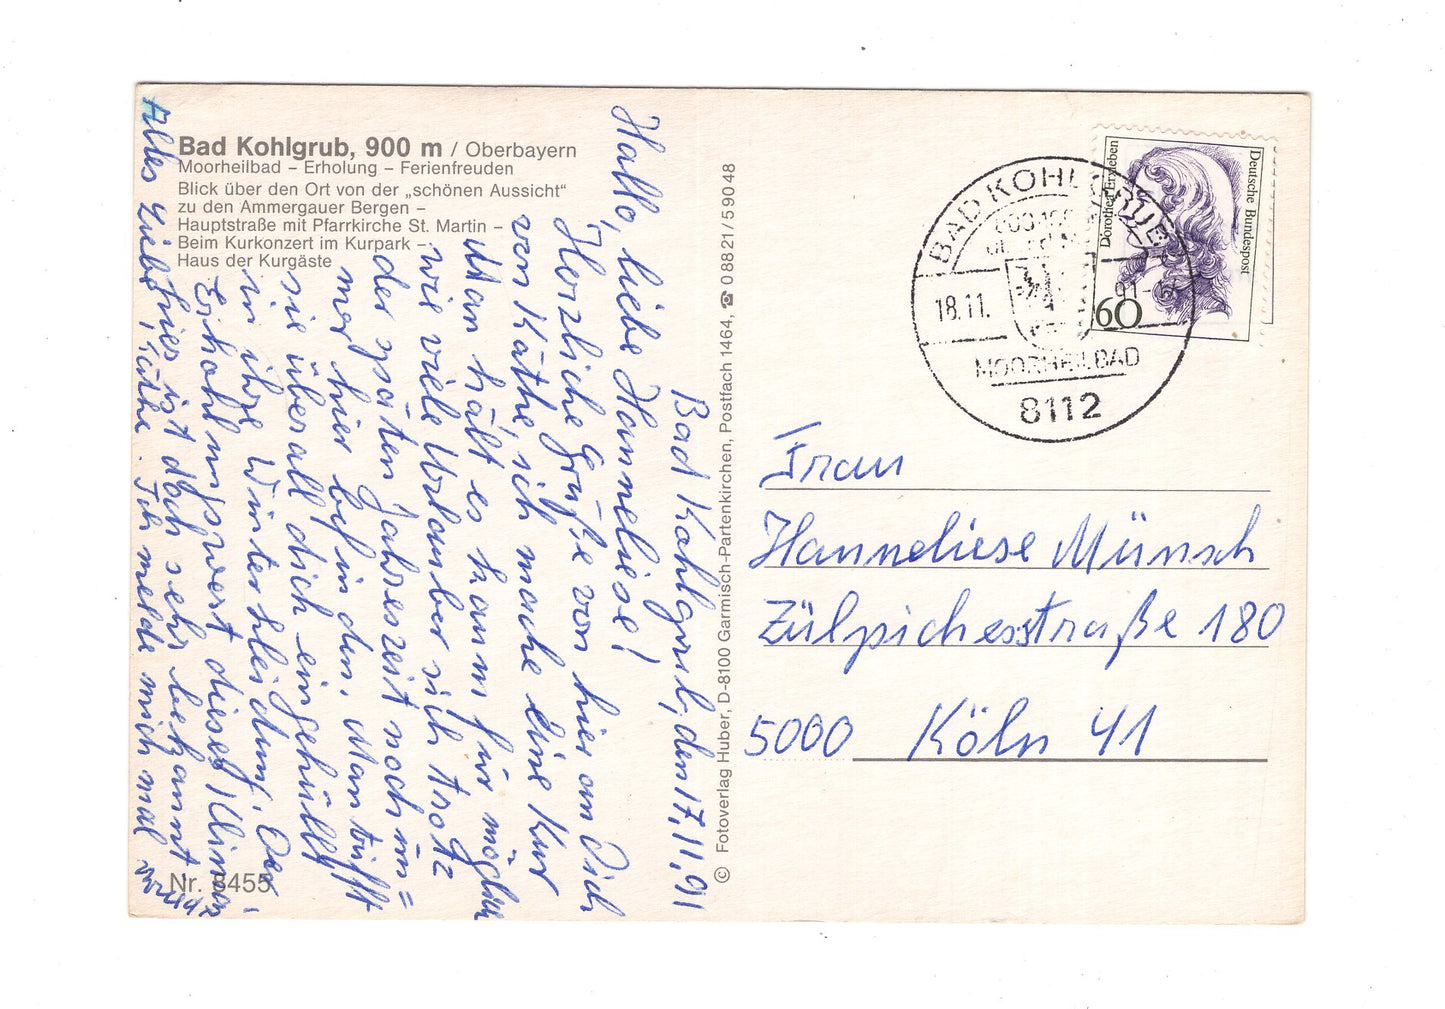 Bad Kohlgrub, 900 m / Oberbayern
Moorheilbad – Erholung – Ferienfreuden
Blick über den Ort von der „schönen Aussicht“
zu den Ammergauer Bergen –
Hauptstraße mit Pfarrkirche St. Martin –
Beim Kurkonzert im Kurpark –
Haus der Kurgäste
Nr. 8455
Bad Kohlgrub, den 17.11.91
Hallo, liebe Hanneliese!
Herzliche Grüße von hier an Dich
von Käthe, ich mache eine Kur
Man hält es kaum für möglich
wie viele Urlauber sich trotz
der späten Jahreszeit noch im=
mer hier befinden. Man trifft
sie überall dich eingehüllt
in ihre Winterkleidung. Der
Erholungswert dieses Klimas
hier ist doch sehr bekannt.
Alles Liebe, Käthe. Ich melde mich mal
© Fotoverlag Huber, D-8100 Garmisch-Partenkirchen, Postfach 1464, ☎ 08821/59048
BAD KOHLGRUB
18.11. 91
MOORHEILBAD
8112
Deutsche Bundespost
Dorothea Erxleben
60
Frau
Hanneliese Münsch
Zülpicherstraße 180
5000 Köln 41